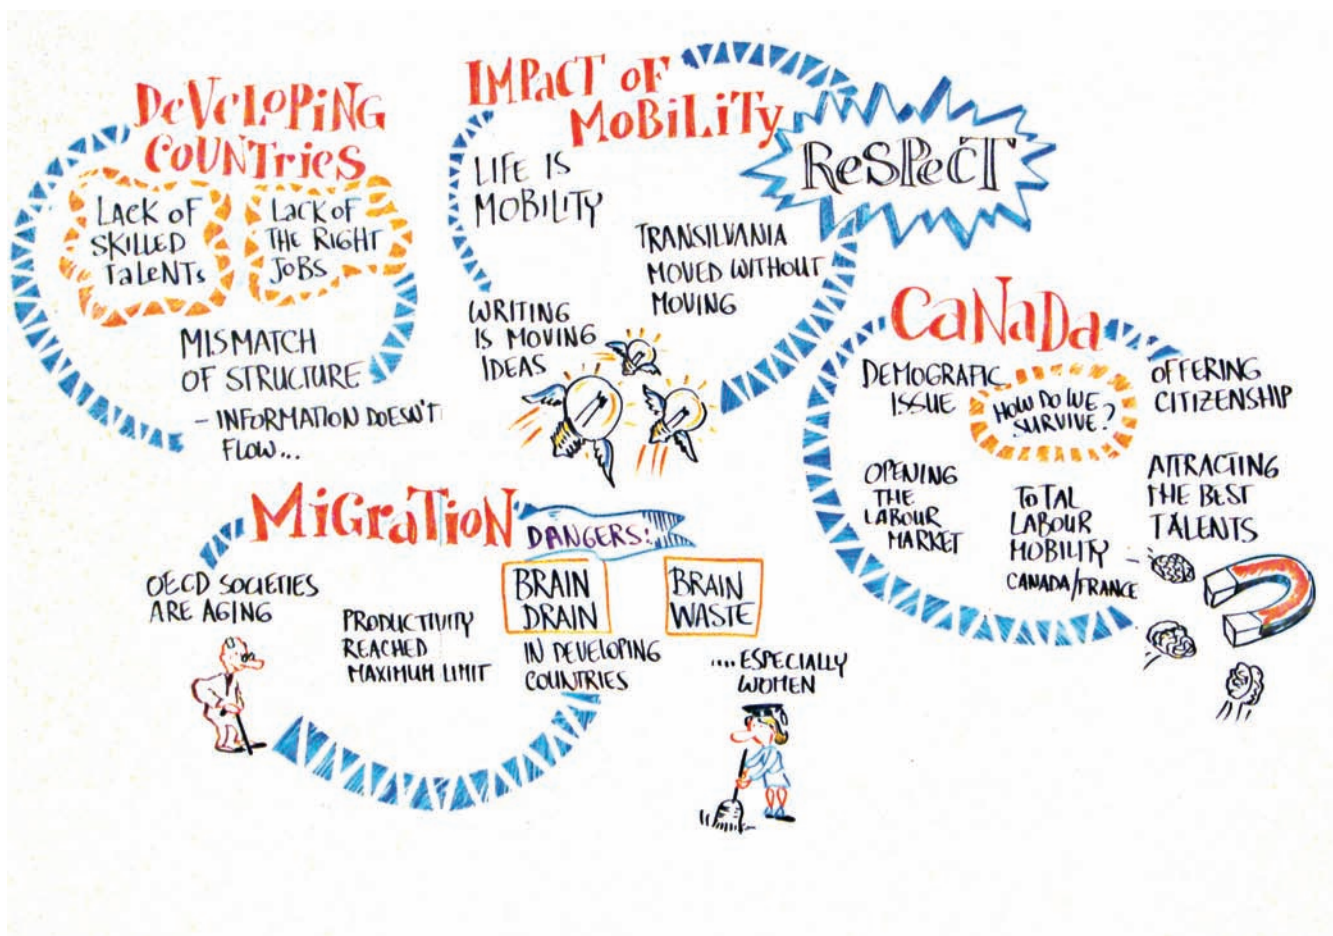 DeVeLoPiNG
CoUNTrieS
LACK oF
SKILLED
TaLeNTs
LacK oF
THE RIGHT
JoBS
MISMATCH
OF STRUCTURE
- INFORMATION DOESN'T
FLOW...
IMPaCT oF
MoBiLiTy
LIFE IS
MOBILITY
TRANSILVANIA
MOVED WITHOUT
MOVING
WRITING
IS MOVING
IDEAS
ReSPeCT
CaNaDa
DEMOGRAFIC
ISSUE
HOW DO WE
SURVIVE?
OFFERING
CITIZENSHIP
OPENING
THE
LABOUR
MARKET
ToTAL
LABOUR
MOBILITY -
CANADA/FRANCE
ATTRACTING
THE BEST
TALENTS
MiGraTioN
DANGERS!
OECD SOCIETIES
ARE AGING
PRODUCTIVITY
REACHED
MAXIMUM LIMIT
BRAIN
DRAIN
IN DEVELOPING
COUNTRIES
BRAIN
WASTE
.... ESPECIALLY
WOMEN